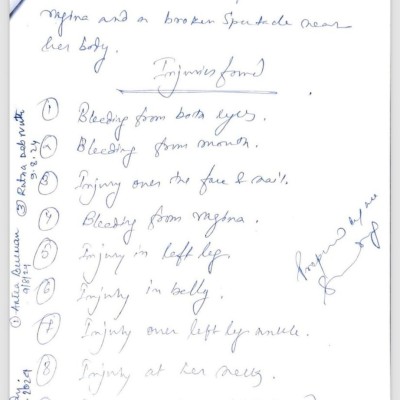 vagina and a broken Spectacle near
her body.
Injuries found
① Bleeding from both eyes.
② Bleeding from mouth.
③ Injury over the face & nail.
④ Bleeding from vagina.
⑤ Injury in left leg.
⑥ Injury in belly.
⑦ Injury over left leg ankle.
⑧ Injury at her neck.
Prepared by me
③ Ratna Debnath
9.8.24
①
9/8/24
2024